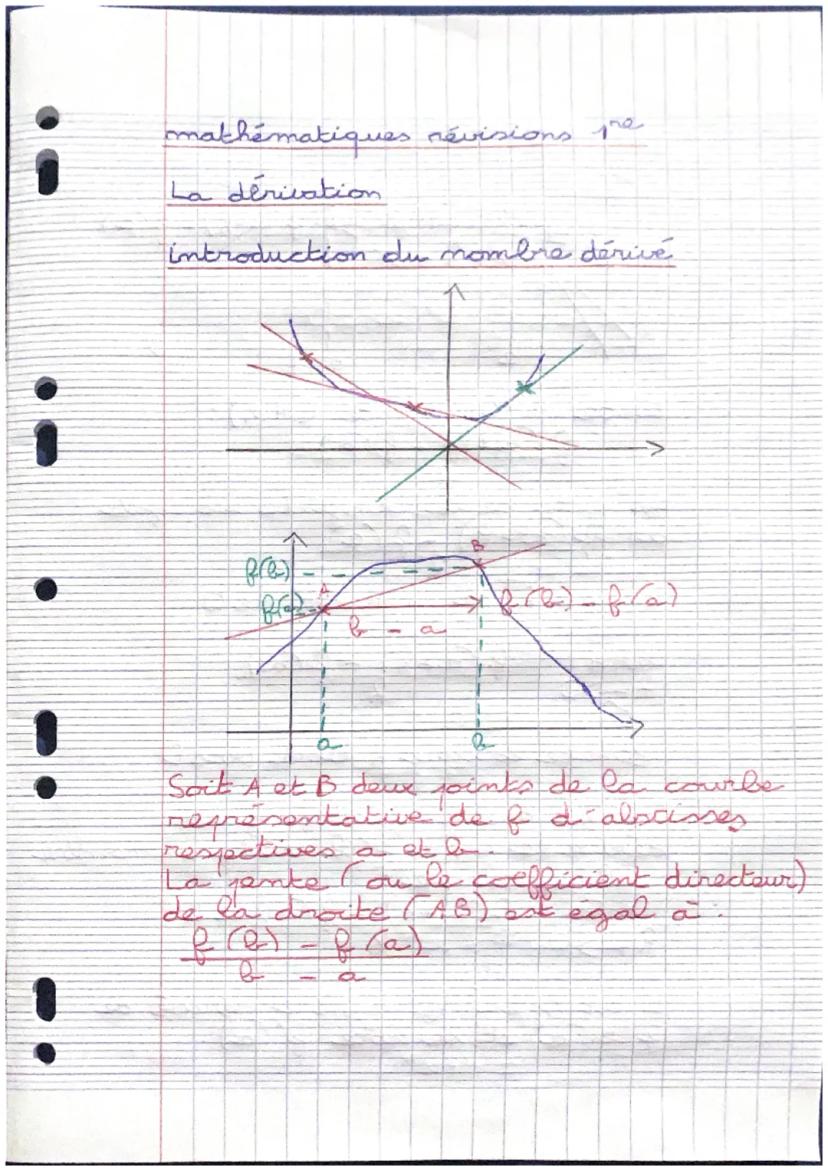 mathématiques révisions 1re
La dérivation
introduction du nombre dérivé
B
f(b)
A
f(a)
f(b) - f(a)
b - a
a
b
Soit A et B deux points de la courbe
représentative de f d'abscisses
respectives a et b.
La pente (ou le coefficient directeur)
de la droite (AB) est égal à :
f(b) - f(a)
b - a